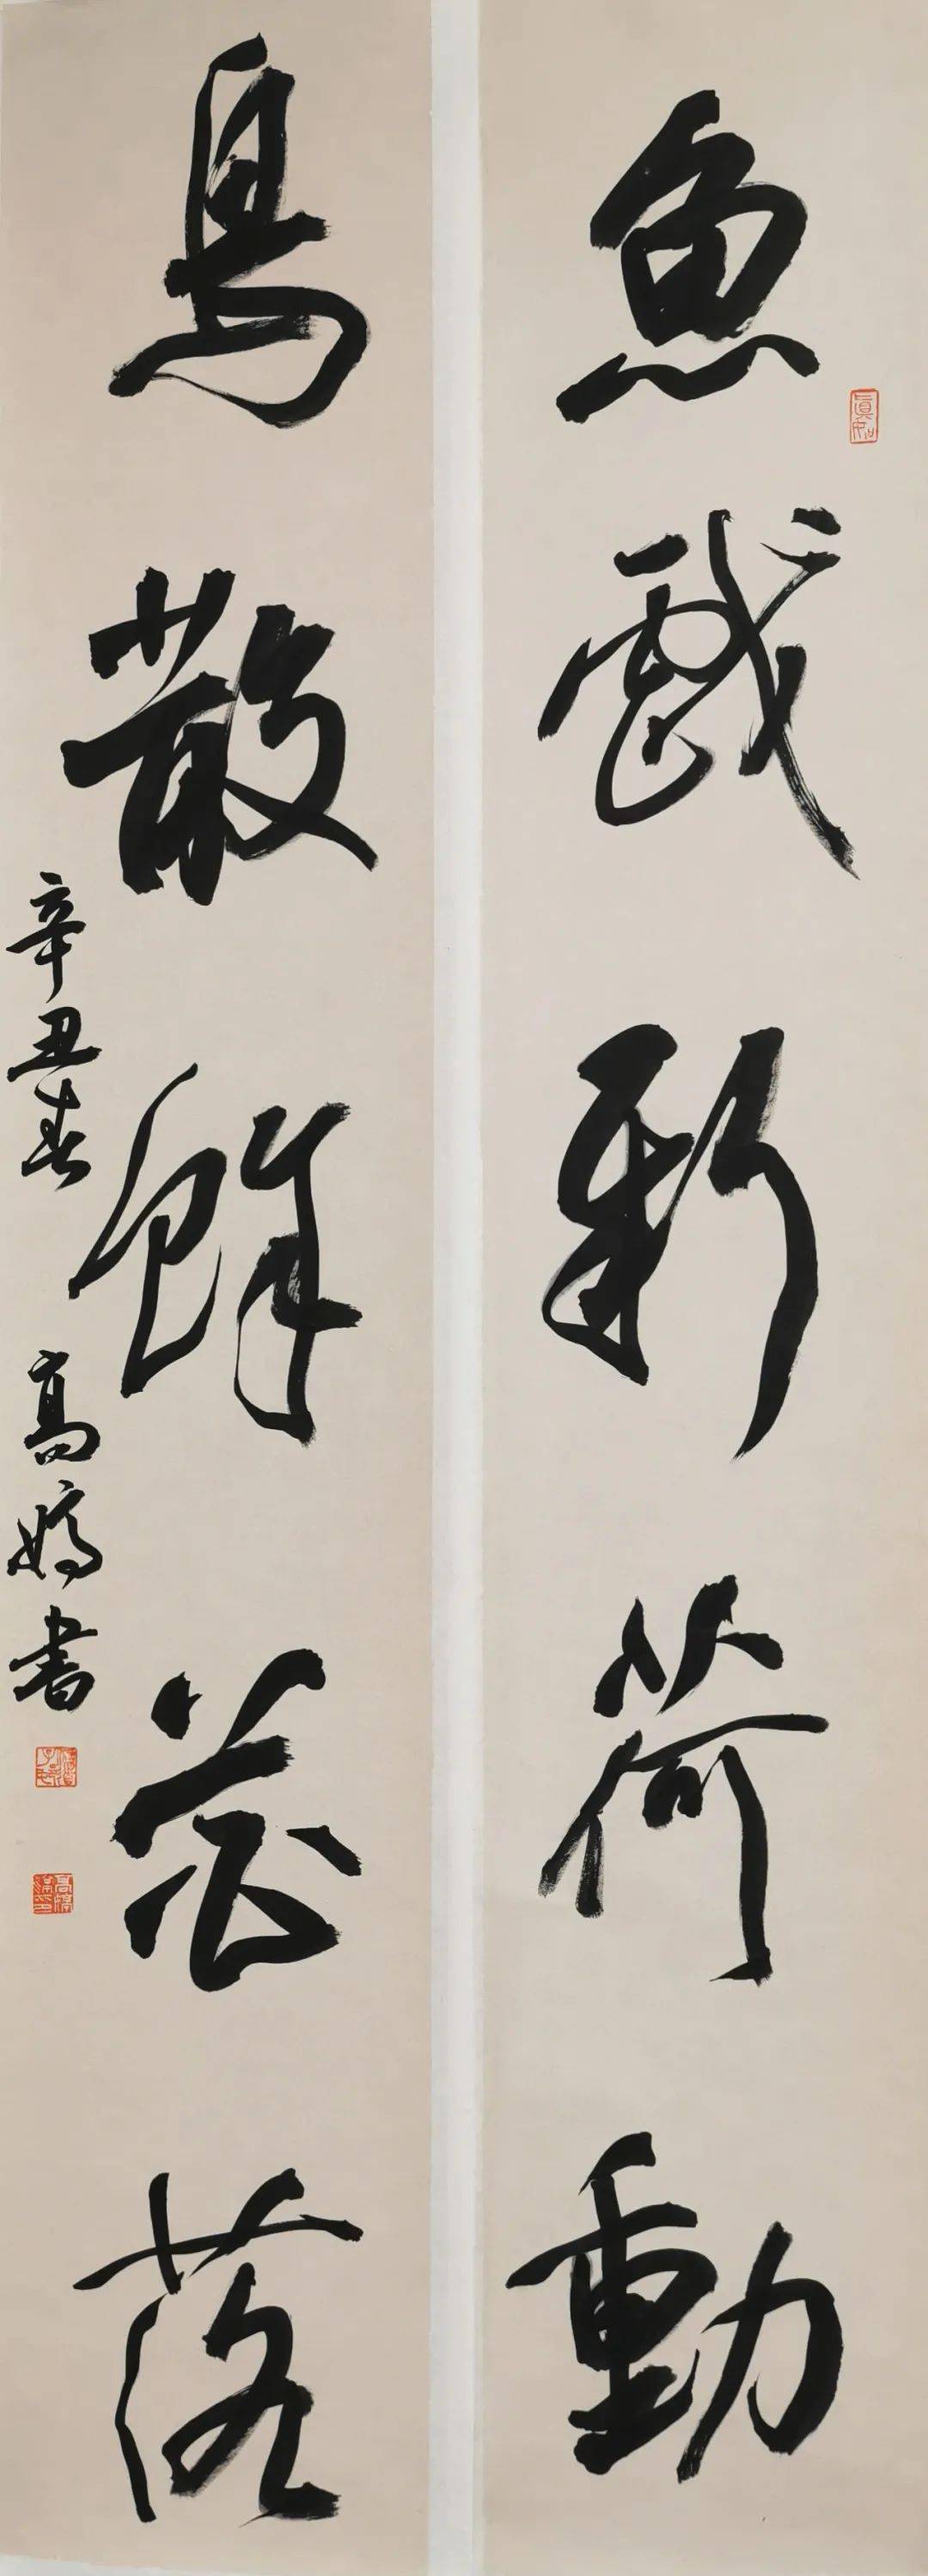 魚戲新荷動
鳥散餘花落
辛丑春 高嬌書